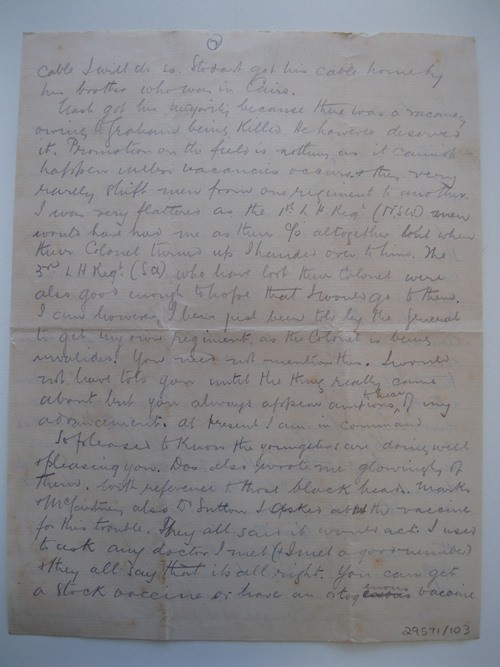 ②
cable I will do so. Stodart got his cable home by
his brother who was in Cairo.
Nash got his majority because there was a vacancy
owing to Graham being killed. He however deserved
it. Promotion on the field is nothing as it cannot
happen unless vacancies occur & they very
rarely shift men from one regiment to another.
I was very flattered as the 1st L H Regt (NSW) men
would have had me as their C/O altogether but when
their Colonel turned up I handed over to him. The
3rd L H Regt (SA) who have lost their Colonel were
also good enough to hope that I would go to them.
I am however I have just been told by the General
to get my own regiment, as the Colonel is being
invalided. You need not mention this. I would
not have told you until the thing really came
about but you always appear anxious to hear of my
advancement. At present I am in command
So pleased to know the youngsters are doing well
& pleasing you. Das also wrote me glowingly of
them. With reference to those black heads. Marks
& McCartney also Dr Sutton I asked abt the vaccine
for this trouble. They all said it would act. I used
to ask any doctor I met (& I met a good number
& they all say that its all right. You can get
a stock vaccine or have an autogenous vaccine
29571/103